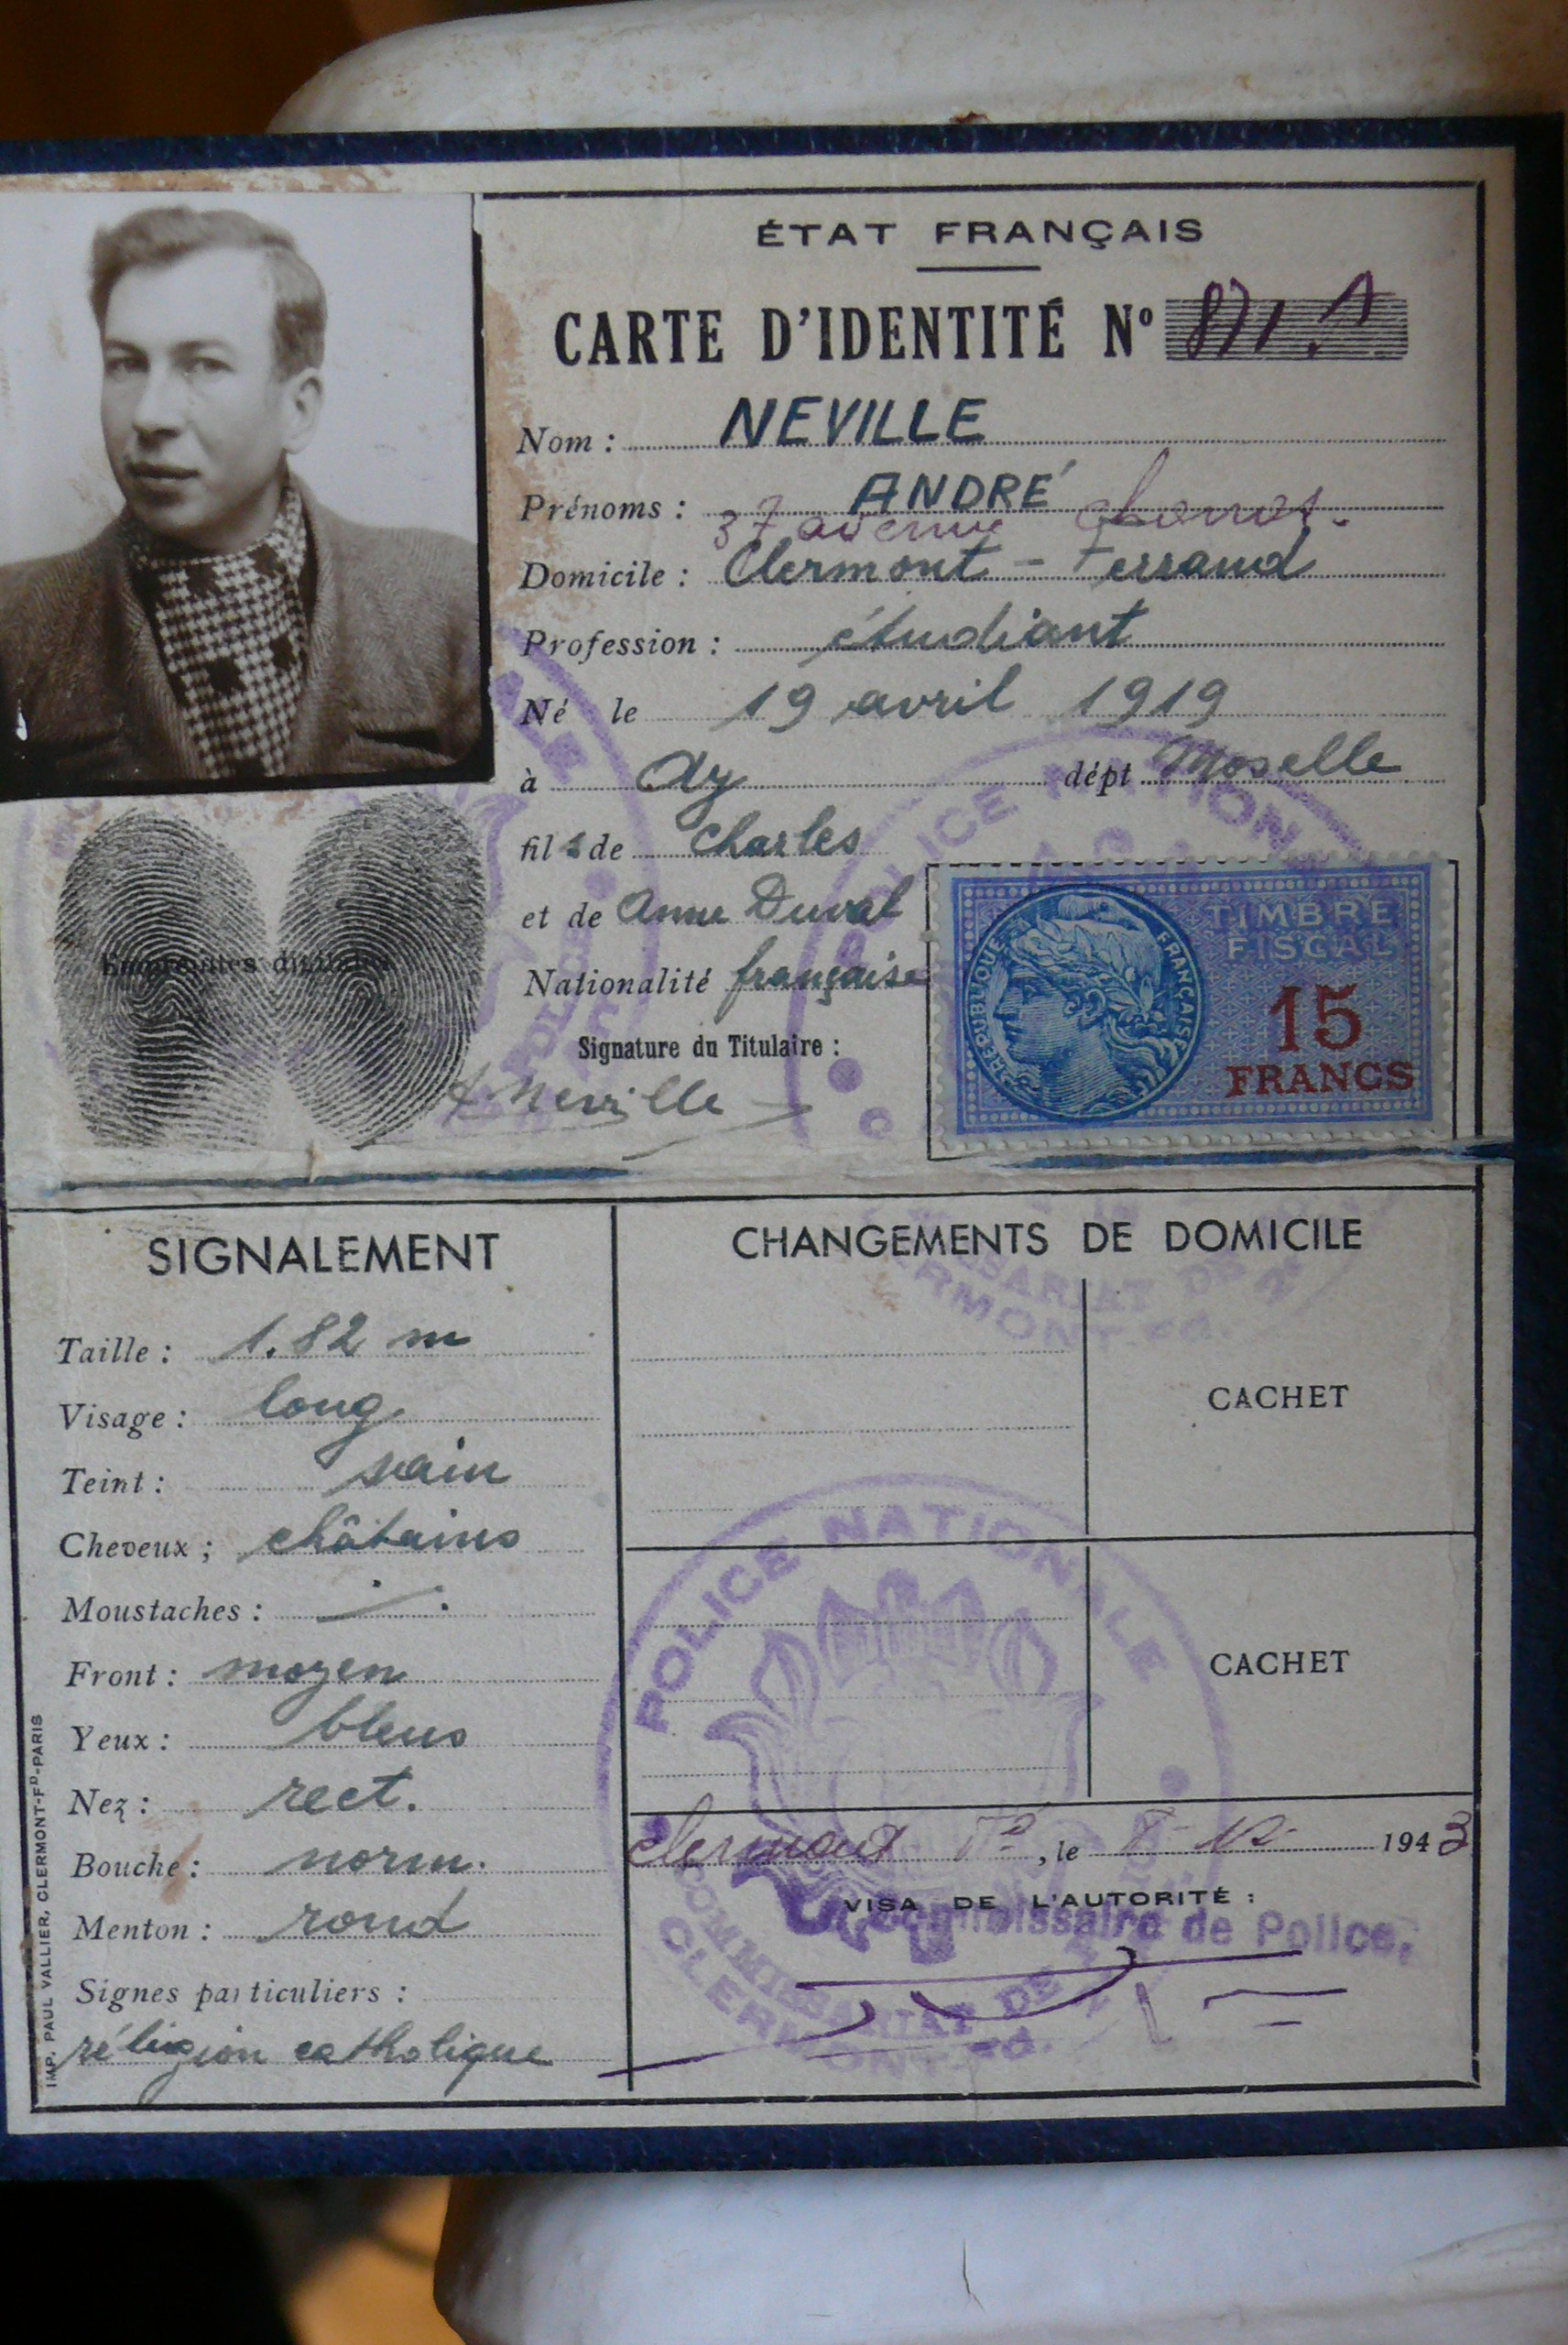 ÉTAT FRANÇAIS
CARTE D'IDENTITÉ N°
Nom : NEVILLE
Prénoms : ANDRÉ
37 avenue
Domicile : Clermont-Ferrand
Profession : étudiant
Né le 19 avril 1919
à Ay dépt Moselle
fils de Charles
et de Anne Duval
Nationalité française
Empreintes digitales
Signature du Titulaire :
A. Neville
RÉPUBLIQUE FRANÇAISE
TIMBRE
FISCAL
15
FRANCS
POLICE NATIONALE
SIGNALEMENT
Taille : 1.82 m
Visage : long
Teint : sain
Cheveux ; châtains
Moustaches :
Front : moyen
Yeux : bleus
Nez : rect.
Bouche : norm.
Menton : rond
Signes particuliers :
réligion catholique
IMP. PAUL VALLIER, CLERMONT-FD-PARIS
CHANGEMENTS DE DOMICILE
CACHET
CACHET
POLICE NATIONALE
COMMISSARIAT DE
CLERMONT-Fd.
Clermont Fd, le 1943
VISA DE L'AUTORITÉ :
Commissaire de Police,